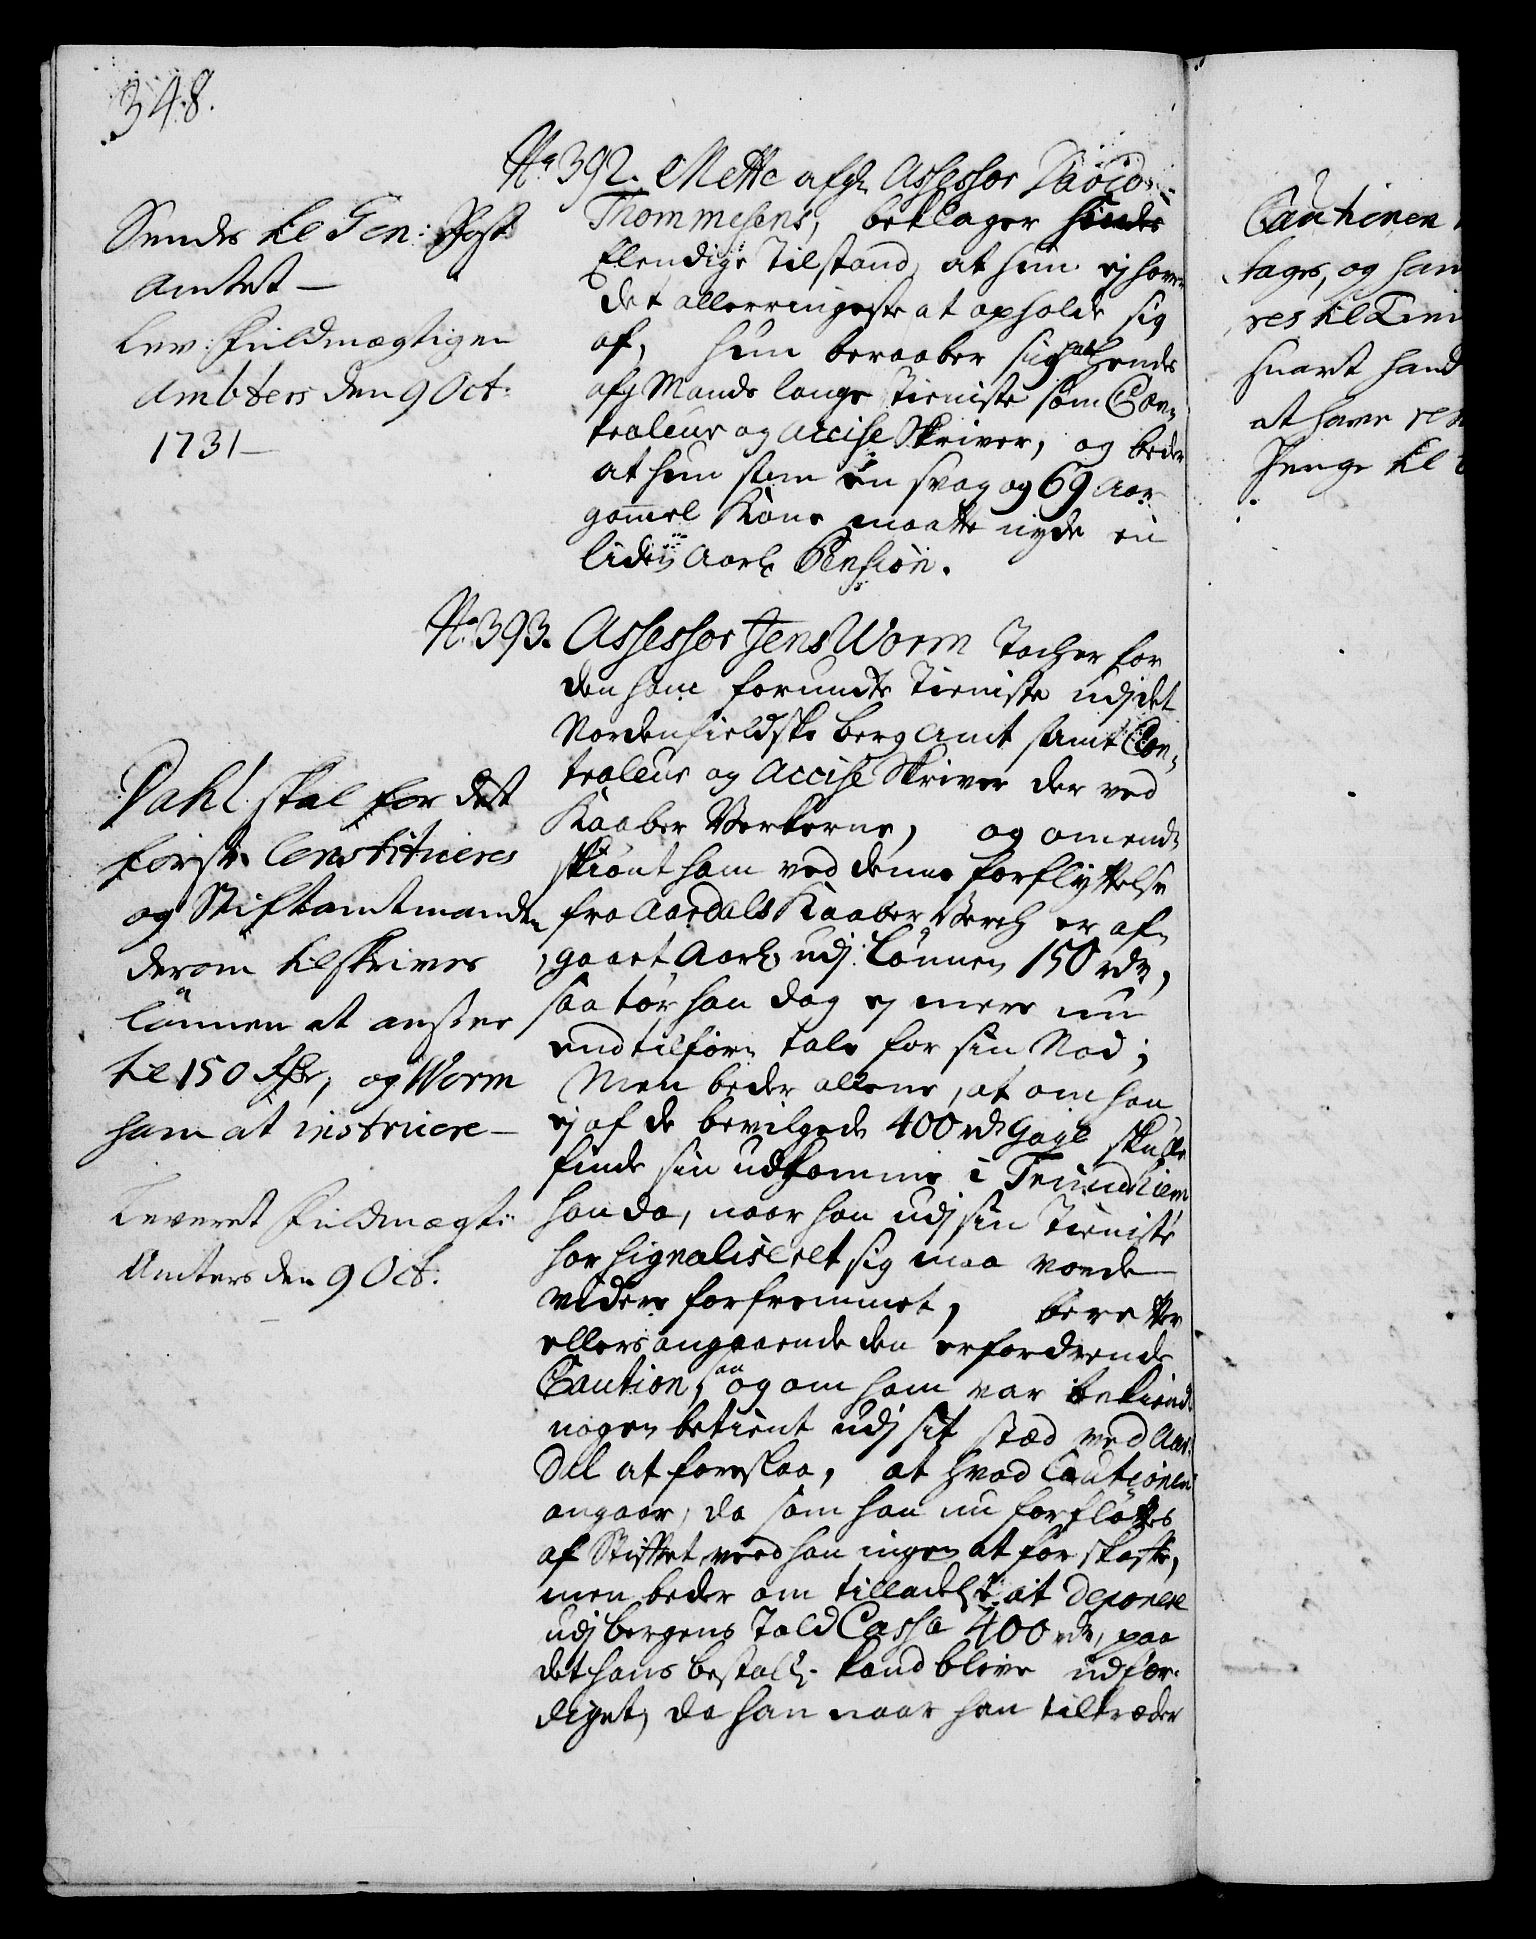 348.
No 392. Mette afg: Assessor David
Thommesens, beklager hendes
Elendige Tilstand, at hun ej haver
det allerringeste at opholde sig
af, hun beraaber sig paa hendes
afg: Mands lange Tieniste som Con-
traleur og Accise Skriver, og beder
at hun som en svag og 69 Aar
gammel Kone maatte nyde en
liden Aarl: Pension.
Sendes til Gen: Post
Amtet —
Lev: Fuldmægtigen
Ambders den 9 Oct:
1731 —
No 393. Assessor Jens Worm Tacher for
den ham forundte Tieniste udj det
Nordenfieldske Berg Amt samt Con-
traleur og Accise Skriver der ved
Kaaber Verkerne, og omend
skiønt ham ved denne forflyttelse
fra Aardals Kaaber Verch er af-
gaaet Aarl: udj Lønnen 150 rdr,
saa tør han dog ej mere nu
end tilforn tale for sin Nød;
Men beder allene, at om han
ej af de bevilgede 400 rdr Gage skulle
finde sin udkomme i Trundhiem
han da, naar han udj sin Tieniste
har signaliseret sig maa vorde
videre forfremmet, beretter
ellers angaaende den erfordrende
Caution, saa og om ham var bekiend
nogen betient udj sit stæd ved Aar-
dal at foreslaa, at hvad Cautionen
angaar, da som han nu forfløttes
af Stiftet, veed han ingen at for skaffe,
men beder om tilladelse at deponere
udj Bergens Told Cassa 400 rdr, paa
det hans bestall: kand blive udfær-
diget, da han naar han tiltræder
Dahl skal for det
første Constitueres
og Stiftamtmanden
derom tilskrives
Lønnen at ansættes
til 150 Rdr, og Worm
ham at instruere —
Leveret Fuldmægt:
Amters den 9 Oct:
Cautionen
tages, og han
res til
snart hand
at have
Penge til